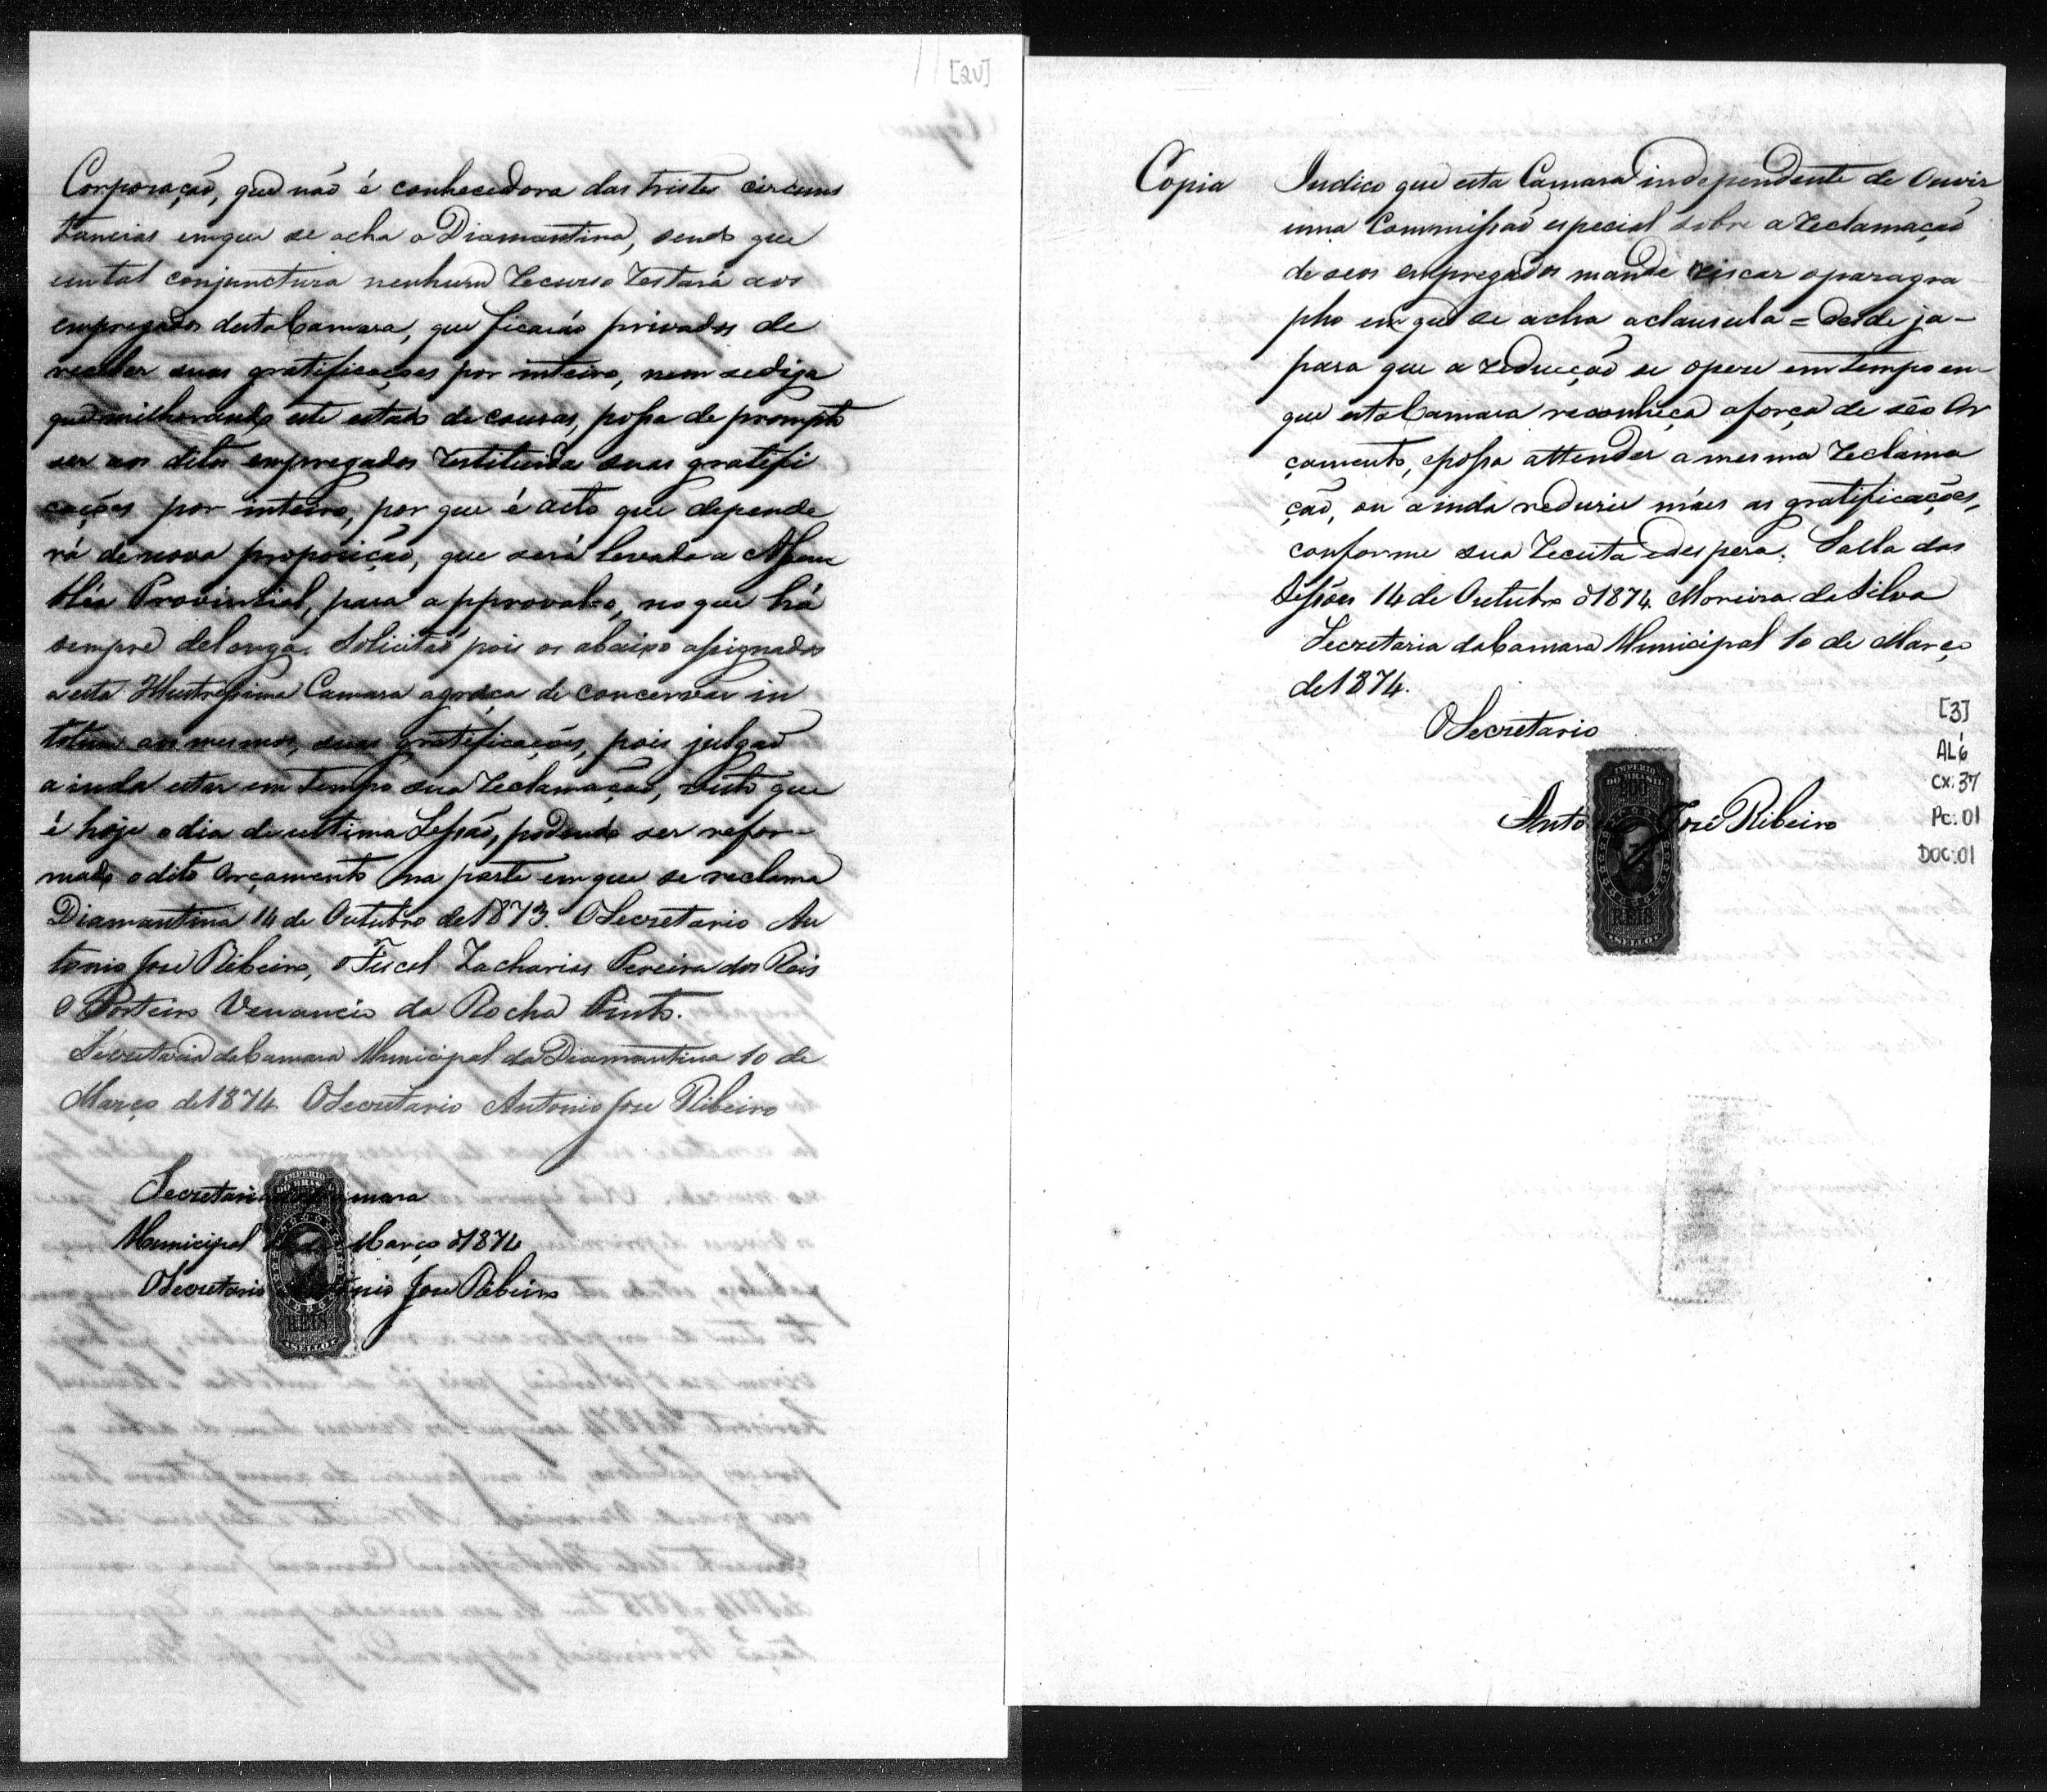 [2v]
Corporação, que não é conhecedora das tristes circuns
tancias em que se acha a Diamantina, sendo que
em tal conjunctura nenhum recurso restará aos
empregados desta Camara, que ficarão privados de
receber suas gratificações por inteiro, nem se diga
que milhorando este estado de cousas, possa de prompto
ser aos ditos empregados restituida suas gratifi
cações por inteiro, por que é acto que depende
rá de nova proposição, que será levada a Assem
bléa Provincial, para approval-a, no que há
sempre delonga. Solicitaõ pois os abaixo assignados
a esta Illustrissima Camara a graça de concervar in
totum aos mesmos, suas gratificações, pois julgaõ
ainda estar em tempo sua reclamação, visto que
é hoje o dia de ultima Sessão, podendo ser refor
mado o dito Orçamento na parte em que se reclama
Diamantina 14 de Outubro de 1873. O Secretario An
tonio Jose Ribeiro, o Fiscal Zacharias Pereira dos Reis
O Porteiro Venancio da Rocha Pinto.
Secretaria da Camara Municipal da Diamantina 10 de
Março de 1874 O Secretario Antonio Jose Ribeiro
Secretaria da Camara
Municipal Março d 1874
O Secretario Antonio Jose Ribeiro
IMPERIO
DO BRASIL
REIS
SELLO
Copia
Indico que esta Camara independente de Ouvir
uma Commissaõ especial sobre a reclamação
de seos empregados mande riscar o paragra
pho em que se acha a clausula = desde ja -
para que a reducção se opere em tempo em
que esta Camara reconheça a força de séo Or
çamento, e possa attender a mesma reclama
ção, ou ainda reduzir mais as gratificações,
conforme sua receita e despeza. Salla das
Sessões 14 de Outubro d 1874. Moreira da Silva
Secretaria da Camara Municipal 10 de Março
de 1874.
O Secretario
Antonio José Ribeiro
IMPERIO
DO BRASIL
200
REIS
SELLO
[3]
AL6
CX:37
Pc:01
DOC:01